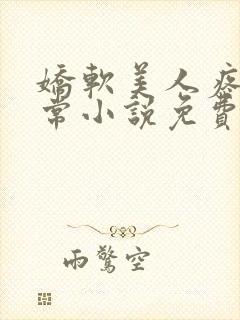 嬌軟美人疼
常小說免費
雨驚空